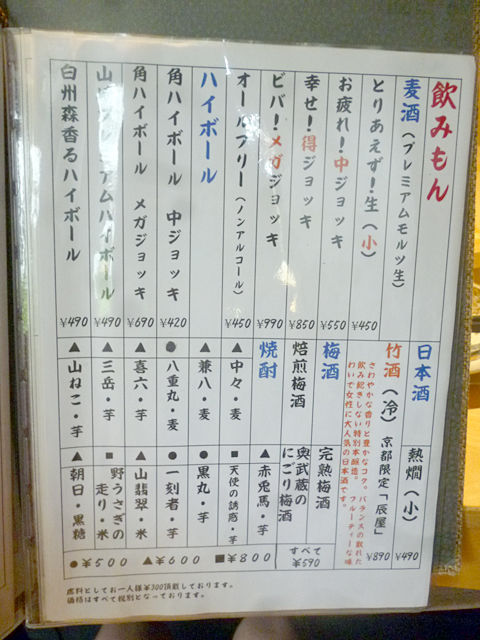 飲みもん
麦酒(プレミアムモルツ生)
とりあえず!生(小) ¥450
お疲れ!中ジョッキ ¥550
幸せ!得ジョッキ ¥850
ビバ!メガジョッキ ¥990
オールフリー(ノンアルコール) ¥450
ハイボール
角ハイボール 中ジョッキ ¥420
角ハイボール メガジョッキ ¥690
アムハイボール ¥490
白州森香るハイボール ¥490
日本酒
熱燗(小) ¥490
竹酒(冷)京都限定「辰屋」 ¥890
さわやかな香りと豊かなコク。バランスの取れた
飲み飽きしない特別本醸造。フルーティーな味
わいで女性に大人気の日本酒です。
梅酒
完熟梅酒
焙煎梅酒
奥武蔵の
にごり梅酒
すべて
¥590
焼酎
▲赤兎馬・芋
▲中々・麦
■天使の誘惑・芋
▲兼八・麦
●黒丸・芋
●八重丸・麦
●一刻者・芋
▲喜六・芋
▲山翡翠・米
▲三岳・芋
■野うさぎの
走り・米
▲山ねこ・芋
▲朝日・黒糖
●¥500 ▲¥600 ■¥800
席料としてお一人様¥300頂戴しております。
価格はすべて税別となっております。